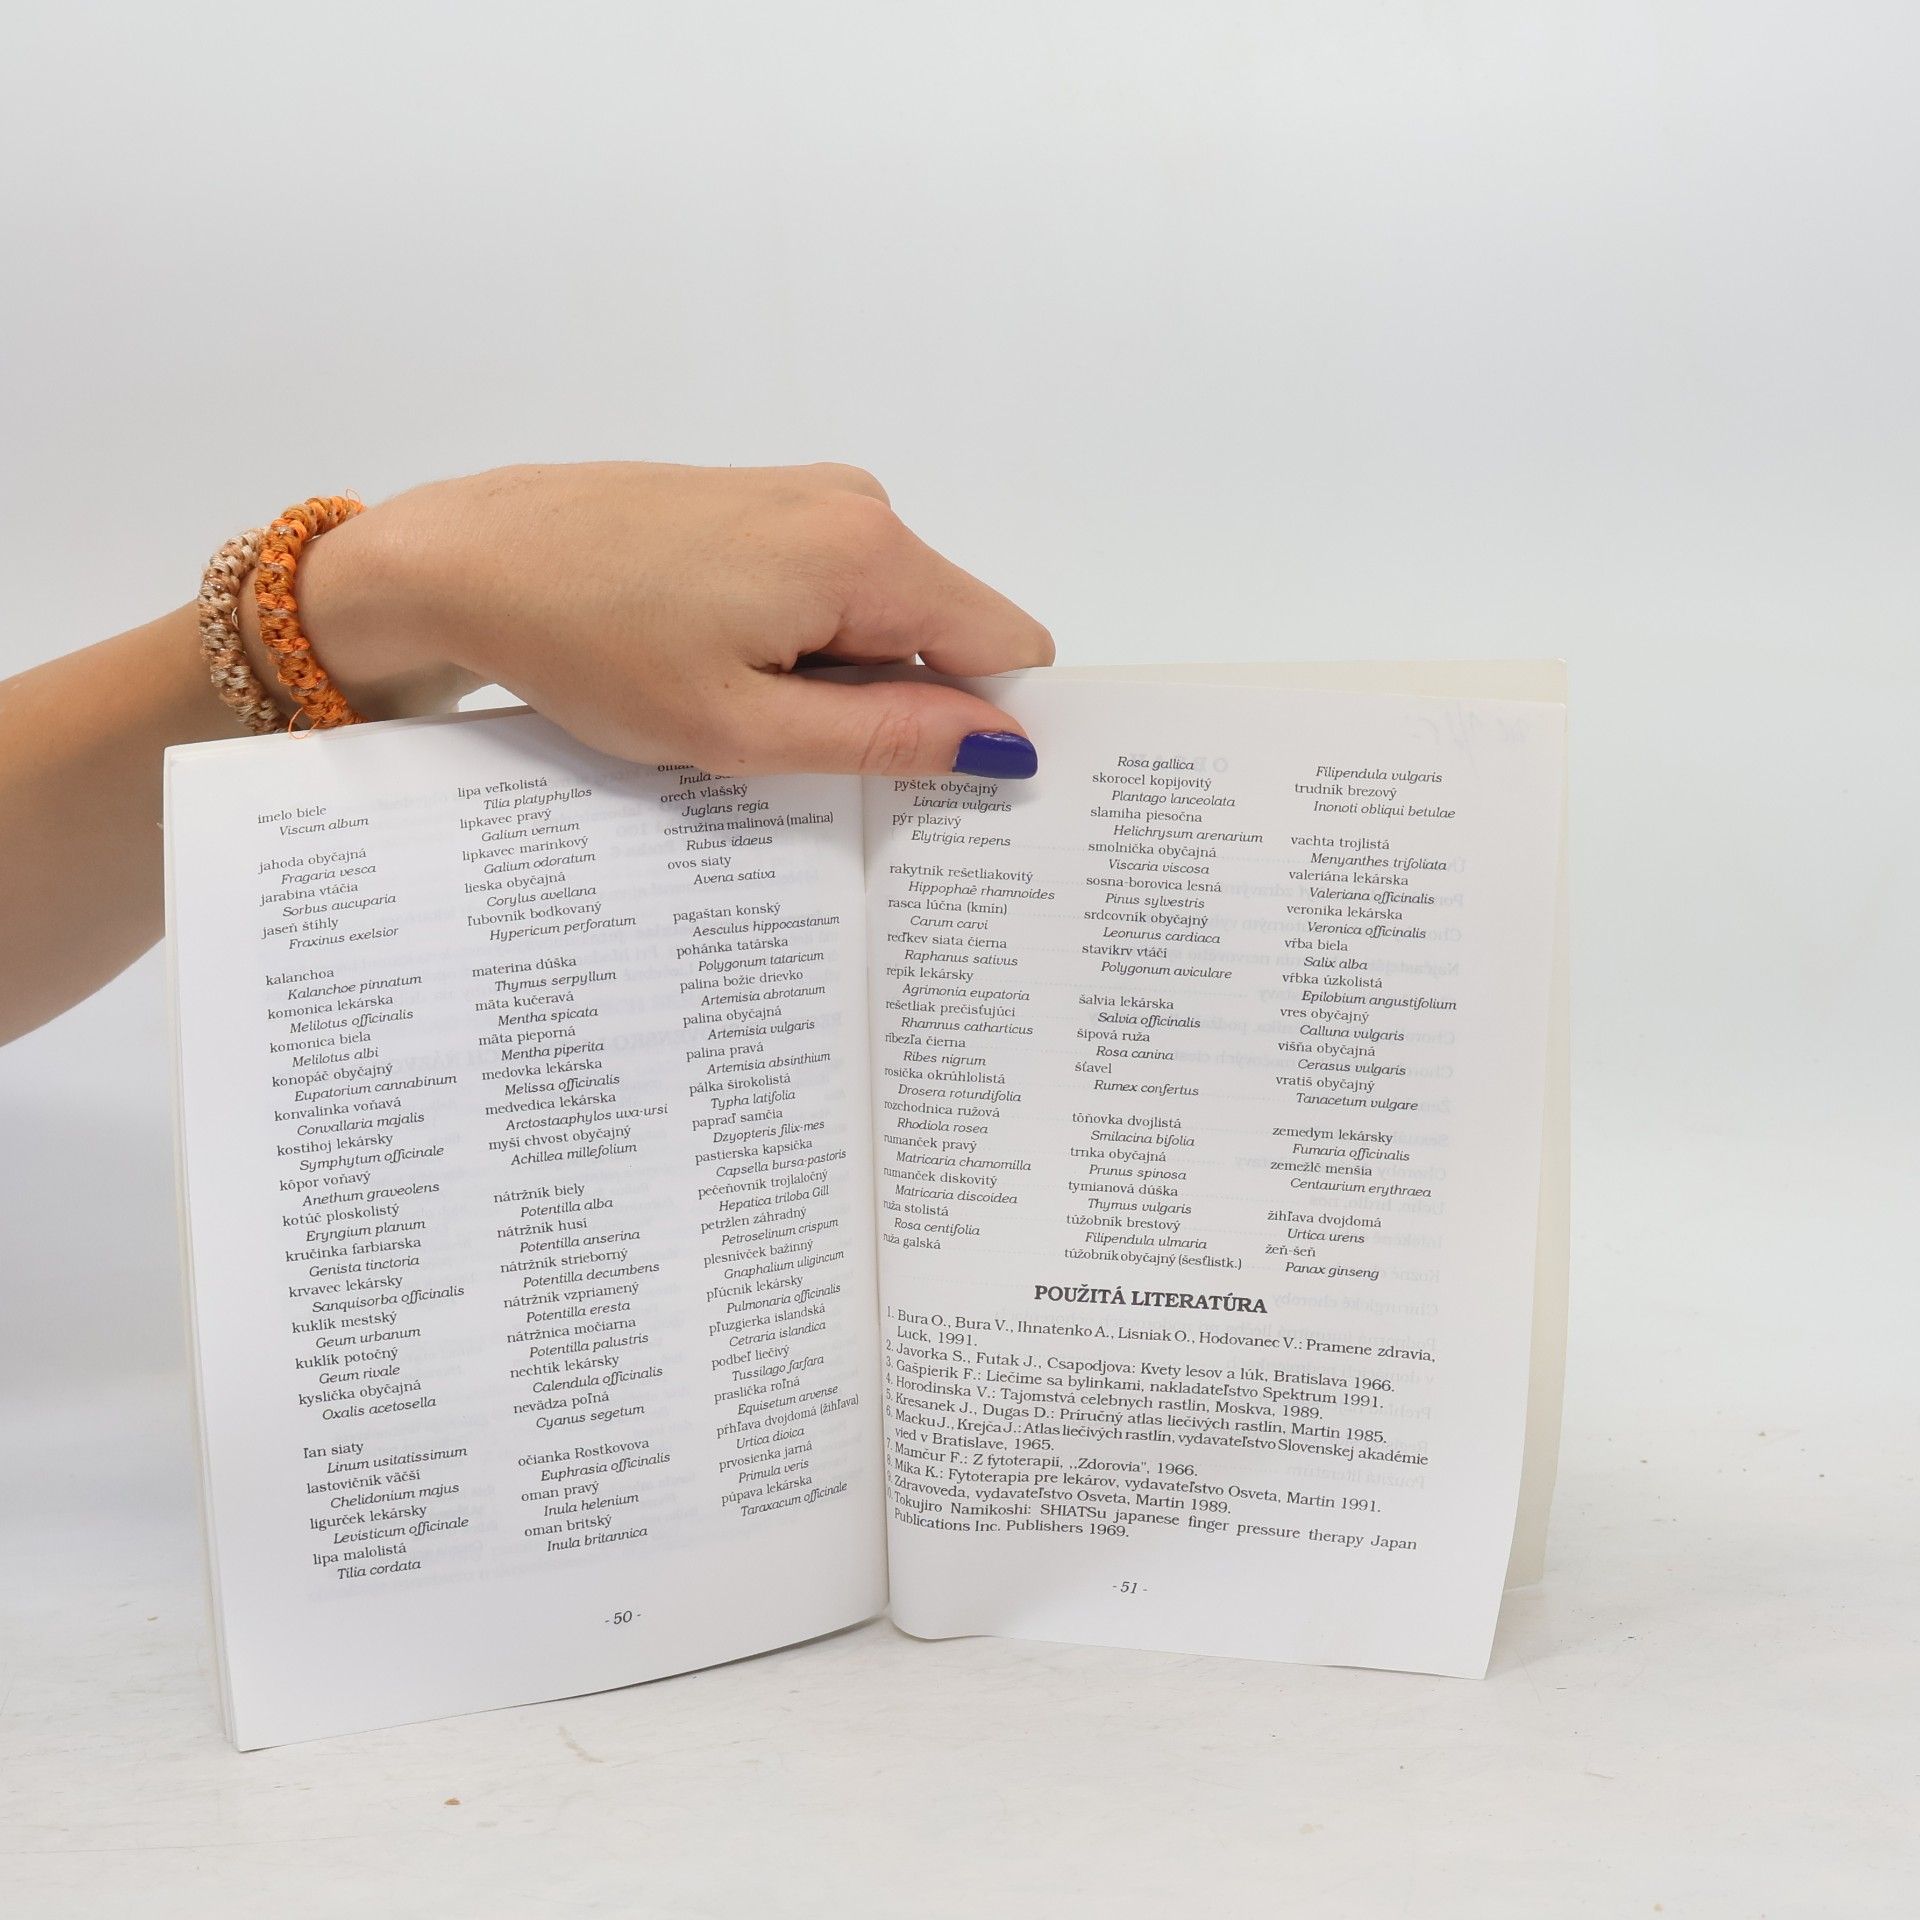 imelo biele
Viscum album
jahoda obyčajná
Fragaria vesca
jarabina vtáčia
Sorbus aucuparia
jaseň štíhly
Fraxinus exelsior
kalanchoa
Kalanchoe pinnatum
komonica lekárska
Melilotus officinalis
komonica biela
Melilotus albi
konopáč obyčajný
Eupatorium cannabinum
konvalinka voňavá
Convallaria majalis
kostihoj lekársky
Symphytum officinale
kôpor voňavý
Anethum graveolens
kotúč ploskolistý
Eryngium planum
kručinka farbiarska
Genista tinctoria
krvavec lekársky
Sanquisorba officinalis
kuklík mestský
Geum urbanum
kuklík potočný
Geum rivale
kyslička obyčajná
Oxalis acetosella
ľan siaty
Linum usitatissimum
lastovičník väčší
Chelidonium majus
ligurček lekársky
Levisticum officinale
lipa malolistá
Tilia cordata
lipa veľkolistá
Tilia platyphyllos
lipkavec pravý
Galium vernum
lipkavec marinkový
Galium odoratum
lieska obyčajná
Corylus avellana
ľubovník bodkovaný
Hypericum perforatum
materina dúška
Thymus serpyllum
mäta kučeravá
Mentha spicata
mäta pieporná
Mentha piperita
medovka lekárska
Melissa officinalis
medvedica lekárska
Arctostaaphylos uwa-ursi
myší chvost obyčajný
Achillea millefolium
nátržník biely
Potentilla alba
nátržník husí
Potentilla anserina
nátržník strieborný
Potentilla decumbens
nátržník vzpriamený
Potentilla eresta
nátržnica močiarna
Potentilla palustris
nechtík lekársky
Calendula officinalis
nevädza poľná
Cyanus segetum
očianka Rostkovova
Euphrasia officinalis
oman pravý
Inula helenium
oman britský
Inula britannica
oman
Inula
orech vlašský
Juglans regia
ostružina malinová (malina)
Rubus idaeus
ovos siaty
Avena sativa
pagaštan konský
Aesculus hippocastanum
pohánka tatárska
Polygonum tataricum
palina božie drievko
Artemisia abrotanum
palina obyčajná
Artemisia vulgaris
palina pravá
Artemisia absinthium
pálka širokolistá
Typha latifolia
papraď samčia
Dzyopteris filix-mes
pastierska kapsička
Capsella bursa-pastoris
pečeňovník trojlaločný
Hepatica triloba Gill
petržlen záhradný
Petroselinum crispum
plesnivček bažinný
Gnaphalium uligincum
pľúcnik lekársky
Pulmonaria officinalis
pľuzgierka islandská
Cetraria islandica
podbeľ liečivý
Tussilago farfara
praslička roľná
Equisetum arvense
pŕhľava dvojdomá (žihľava)
Urtica dioica
prvosienka jarná
Primula veris
púpava lekárska
Taraxacum officinale
- 50 -
pyštek obyčajný
Linaria vulgaris
pýr plazivý
Elytrigia repens
rakytník rešetliakovitý
Hippophaë rhamnoides
rasca lúčna (kmín)
Carum carvi
reďkev siata čierna
Raphanus sativus
repík lekársky
Agrimonia eupatoria
rešetliak prečisťujúci
Rhamnus catharticus
ríbezľa čierna
Ribes nigrum
rosička okrúhlolistá
Drosera rotundifolia
rozchodnica ružová
Rhodiola rosea
rumanček pravý
Matricaria chamomilla
rumanček diskovitý
Matricaria discoidea
ruža stolistá
Rosa centifolia
ruža galská
Rosa gallica
skorocel kopijovitý
Plantago lanceolata
slamiha piesočna
Helichrysum arenarium
smolnička obyčajná
Viscaria viscosa
sosna-borovica lesná
Pinus sylvestris
srdcovník obyčajný
Leonurus cardiaca
stavikrv vtáčí
Polygonum aviculare
šalvia lekárska
Salvia officinalis
šípová ruža
Rosa canina
šťavel
Rumex confertus
tôňovka dvojlistá
Smilacina bifolia
trnka obyčajná
Prunus spinosa
tymianová dúška
Thymus vulgaris
túžobník brestový
Filipendula ulmaria
túžobník obyčajný (šesťlistk.)
Filipendula vulgaris
trudník brezový
Inonoti obliqui betulae
vachta trojlistá
Menyanthes trifoliata
valeriána lekárska
Valeriana officinalis
veronika lekárska
Veronica officinalis
vŕba biela
Salix alba
vŕbka úzkolistá
Epilobium angustifolium
vres obyčajný
Calluna vulgaris
višňa obyčajná
Cerasus vulgaris
vratiš obyčajný
Tanacetum vulgare
zemedym lekársky
Fumaria officinalis
zemežlč menšia
Centaurium erythraea
žihľava dvojdomá
Urtica urens
žeň-šeň
Panax ginseng
POUŽITÁ LITERATÚRA
1. Bura O., Bura V., Ihnatenko A., Lisniak O., Hodovanec V.: Pramene zdravia,
Luck, 1991.
2. Javorka S., Futak J., Csapodjova: Kvety lesov a lúk, Bratislava 1966.
3. Gašpierik F.: Liečime sa bylinkami, nakladateľstvo Spektrum 1991.
4. Horodinska V.: Tajomstvá celebnych rastlin, Moskva, 1989.
5. Kresanek J., Dugas D.: Príručný atlas liečivých rastlín, Martin 1985.
6. Macku J., Krejča J.: Atlas liečivých rastlín, vydavateľstvo Slovenskej akadémie
vied v Bratislave, 1965.
7. Mamčur F.: Z fytoterapii, ,,Zdorovia", 1966.
8. Mika K.: Fytoterapia pre lekárov, vydavateľstvo Osveta, Martin 1991.
9. Zdravoveda, vydavateľstvo Osveta, Martin 1989.
0. Tokujiro Namikoshi: SHIATSu japanese finger pressure therapy Japan
Publications Inc. Publishers 1969.
- 51 -